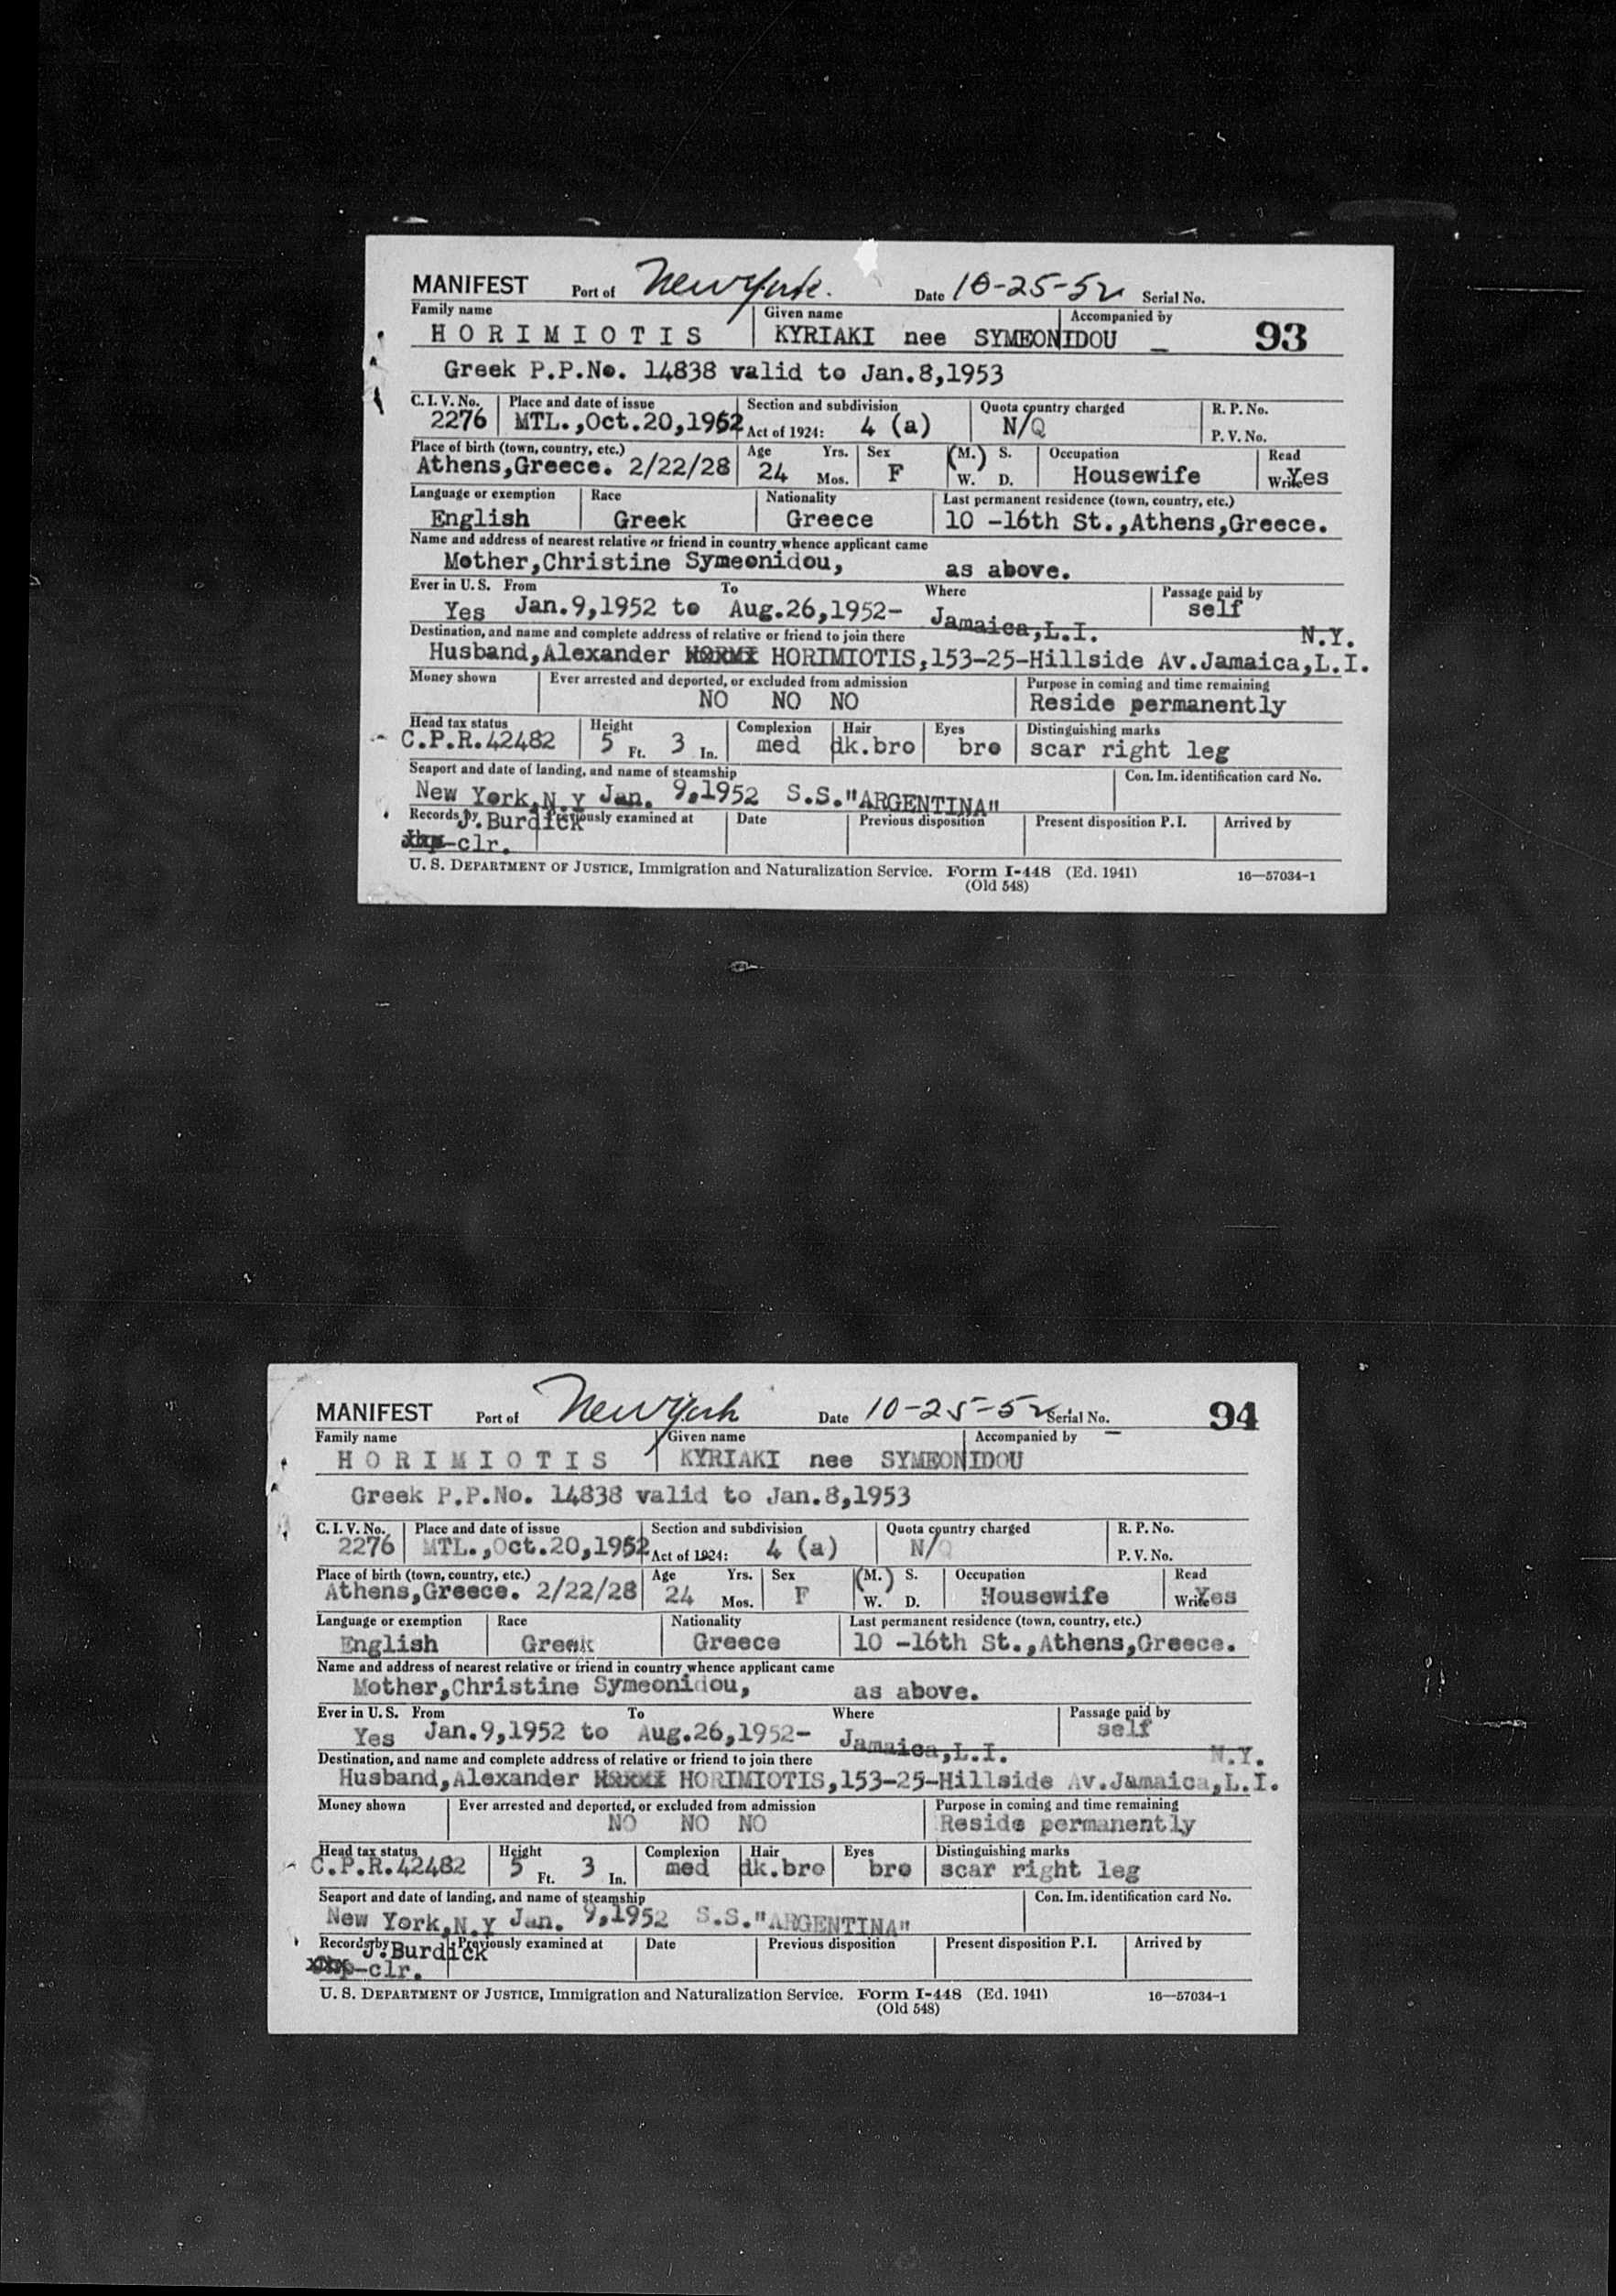 MANIFEST Port of New York. Date 10-25-52 Serial No.
Family name Given name Accompanied by
HORIMIOTIS KYRIAKI nee SYMEONIDOU — 93
Greek P.P.No. 14838 valid to Jan.8,1953
C. I. V. No. Place and date of issue Section and subdivision Quota country charged R. P. No.
2276 MTL.,Oct.20,1952 Act of 1924: 4 (a) N/Q P. V. No.
Place of birth (town, country, etc.) Age Yrs. Sex (M.) S. Occupation Read
Athens,Greece. 2/22/28 24 Mos. F W. D. Housewife Write Yes
Language or exemption Race Nationality Last permanent residence (town, country, etc.)
English Greek Greece 10 -16th St.,Athens,Greece.
Name and address of nearest relative or friend in country whence applicant came
Mother,Christine Symeonidou, as above.
Ever in U. S. From To Where Passage paid by
Yes Jan.9,1952 to Aug.26,1952- Jamaica,L.I. self
Destination, and name and complete address of relative or friend to join there N.Y.
Husband,Alexander HORIMIOTIS,153-25-Hillside Av.Jamaica,L.I.
Money shown Ever arrested and deported, or excluded from admission Purpose in coming and time remaining
NO NO NO Reside permanently
Head tax status Height Complexion Hair Eyes Distinguishing marks
C.P.R.42482 5 Ft. 3 In. med dk.bro bro scar right leg
Seaport and date of landing, and name of steamship Con. Im. identification card No.
New York,N.Y Jan. 9,1952 S.S."ARGENTINA"
Records by J.Burdick Previously examined at Date Previous disposition Present disposition P. I. Arrived by
-clr.
U. S. DEPARTMENT OF JUSTICE, Immigration and Naturalization Service. Form I-448 (Ed. 1941) 16—57034-1
(Old 548)
MANIFEST Port of New York Date 10-25-52 Serial No. 94
Family name Given name Accompanied by —
HORIMIOTIS KYRIAKI nee SYMEONIDOU
Greek P.P.No. 14838 valid to Jan.8,1953
C. I. V. No. Place and date of issue Section and subdivision Quota country charged R. P. No.
2276 MTL.,Oct.20,1952 Act of 1924: 4 (a) N/Q P. V. No.
Place of birth (town, country, etc.) Age Yrs. Sex (M.) S. Occupation Read
Athens,Greece. 2/22/28 24 Mos. F W. D. Housewife Write Yes
Language or exemption Race Nationality Last permanent residence (town, country, etc.)
English Greek Greece 10 -16th St.,Athens,Greece.
Name and address of nearest relative or friend in country whence applicant came
Mother,Christine Symeonidou, as above.
Ever in U. S. From To Where Passage paid by
Yes Jan.9,1952 to Aug.26,1952- Jamaica,L.I. self
Destination, and name and complete address of relative or friend to join there N.Y.
Husband,Alexander HORIMIOTIS,153-25-Hillside Av.Jamaica,L.I.
Money shown Ever arrested and deported, or excluded from admission Purpose in coming and time remaining
NO NO NO Reside permanently
Head tax status Height Complexion Hair Eyes Distinguishing marks
C.P.R.42482 5 Ft. 3 In. med dk.bro bro scar right leg
Seaport and date of landing, and name of steamship Con. Im. identification card No.
New York,N.Y Jan. 9,1952 S.S."ARGENTINA"
Records by J.Burdick Previously examined at Date Previous disposition Present disposition P. I. Arrived by
-clr.
U. S. DEPARTMENT OF JUSTICE, Immigration and Naturalization Service. Form I-448 (Ed. 1941) 16—57034-1
(Old 548)